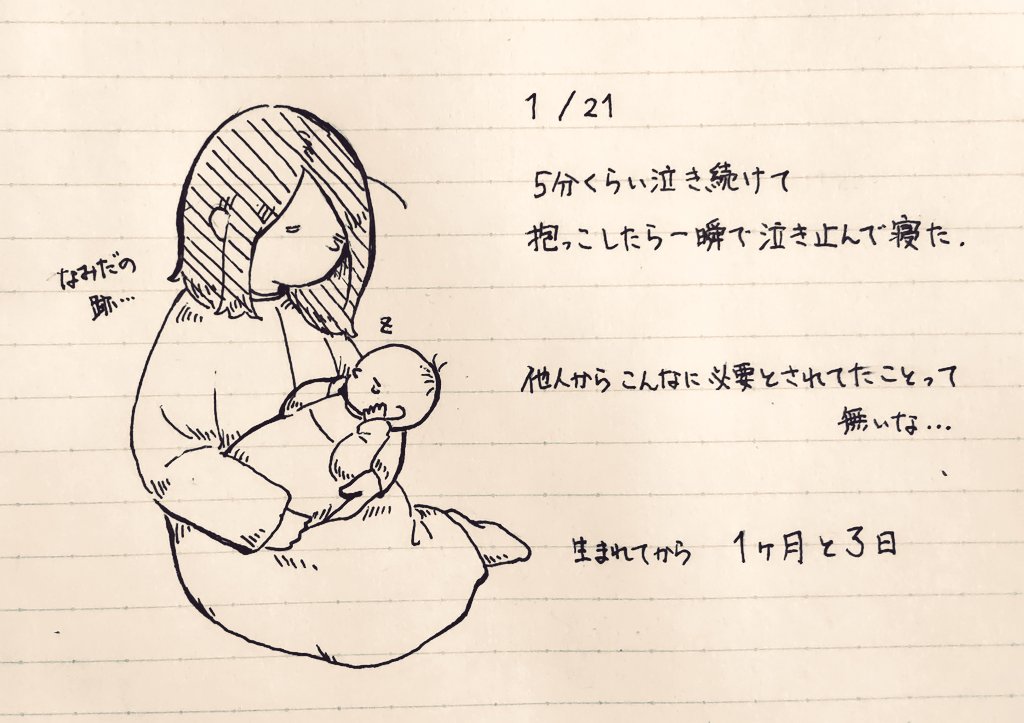 1/21
5分くらい泣き続けて
抱っこしたら一瞬で泣き止んで寝た.
なみだの
跡…
z
他人からこんなに必要とされてたことって
無いな…
生まれてから 1ヶ月と3日